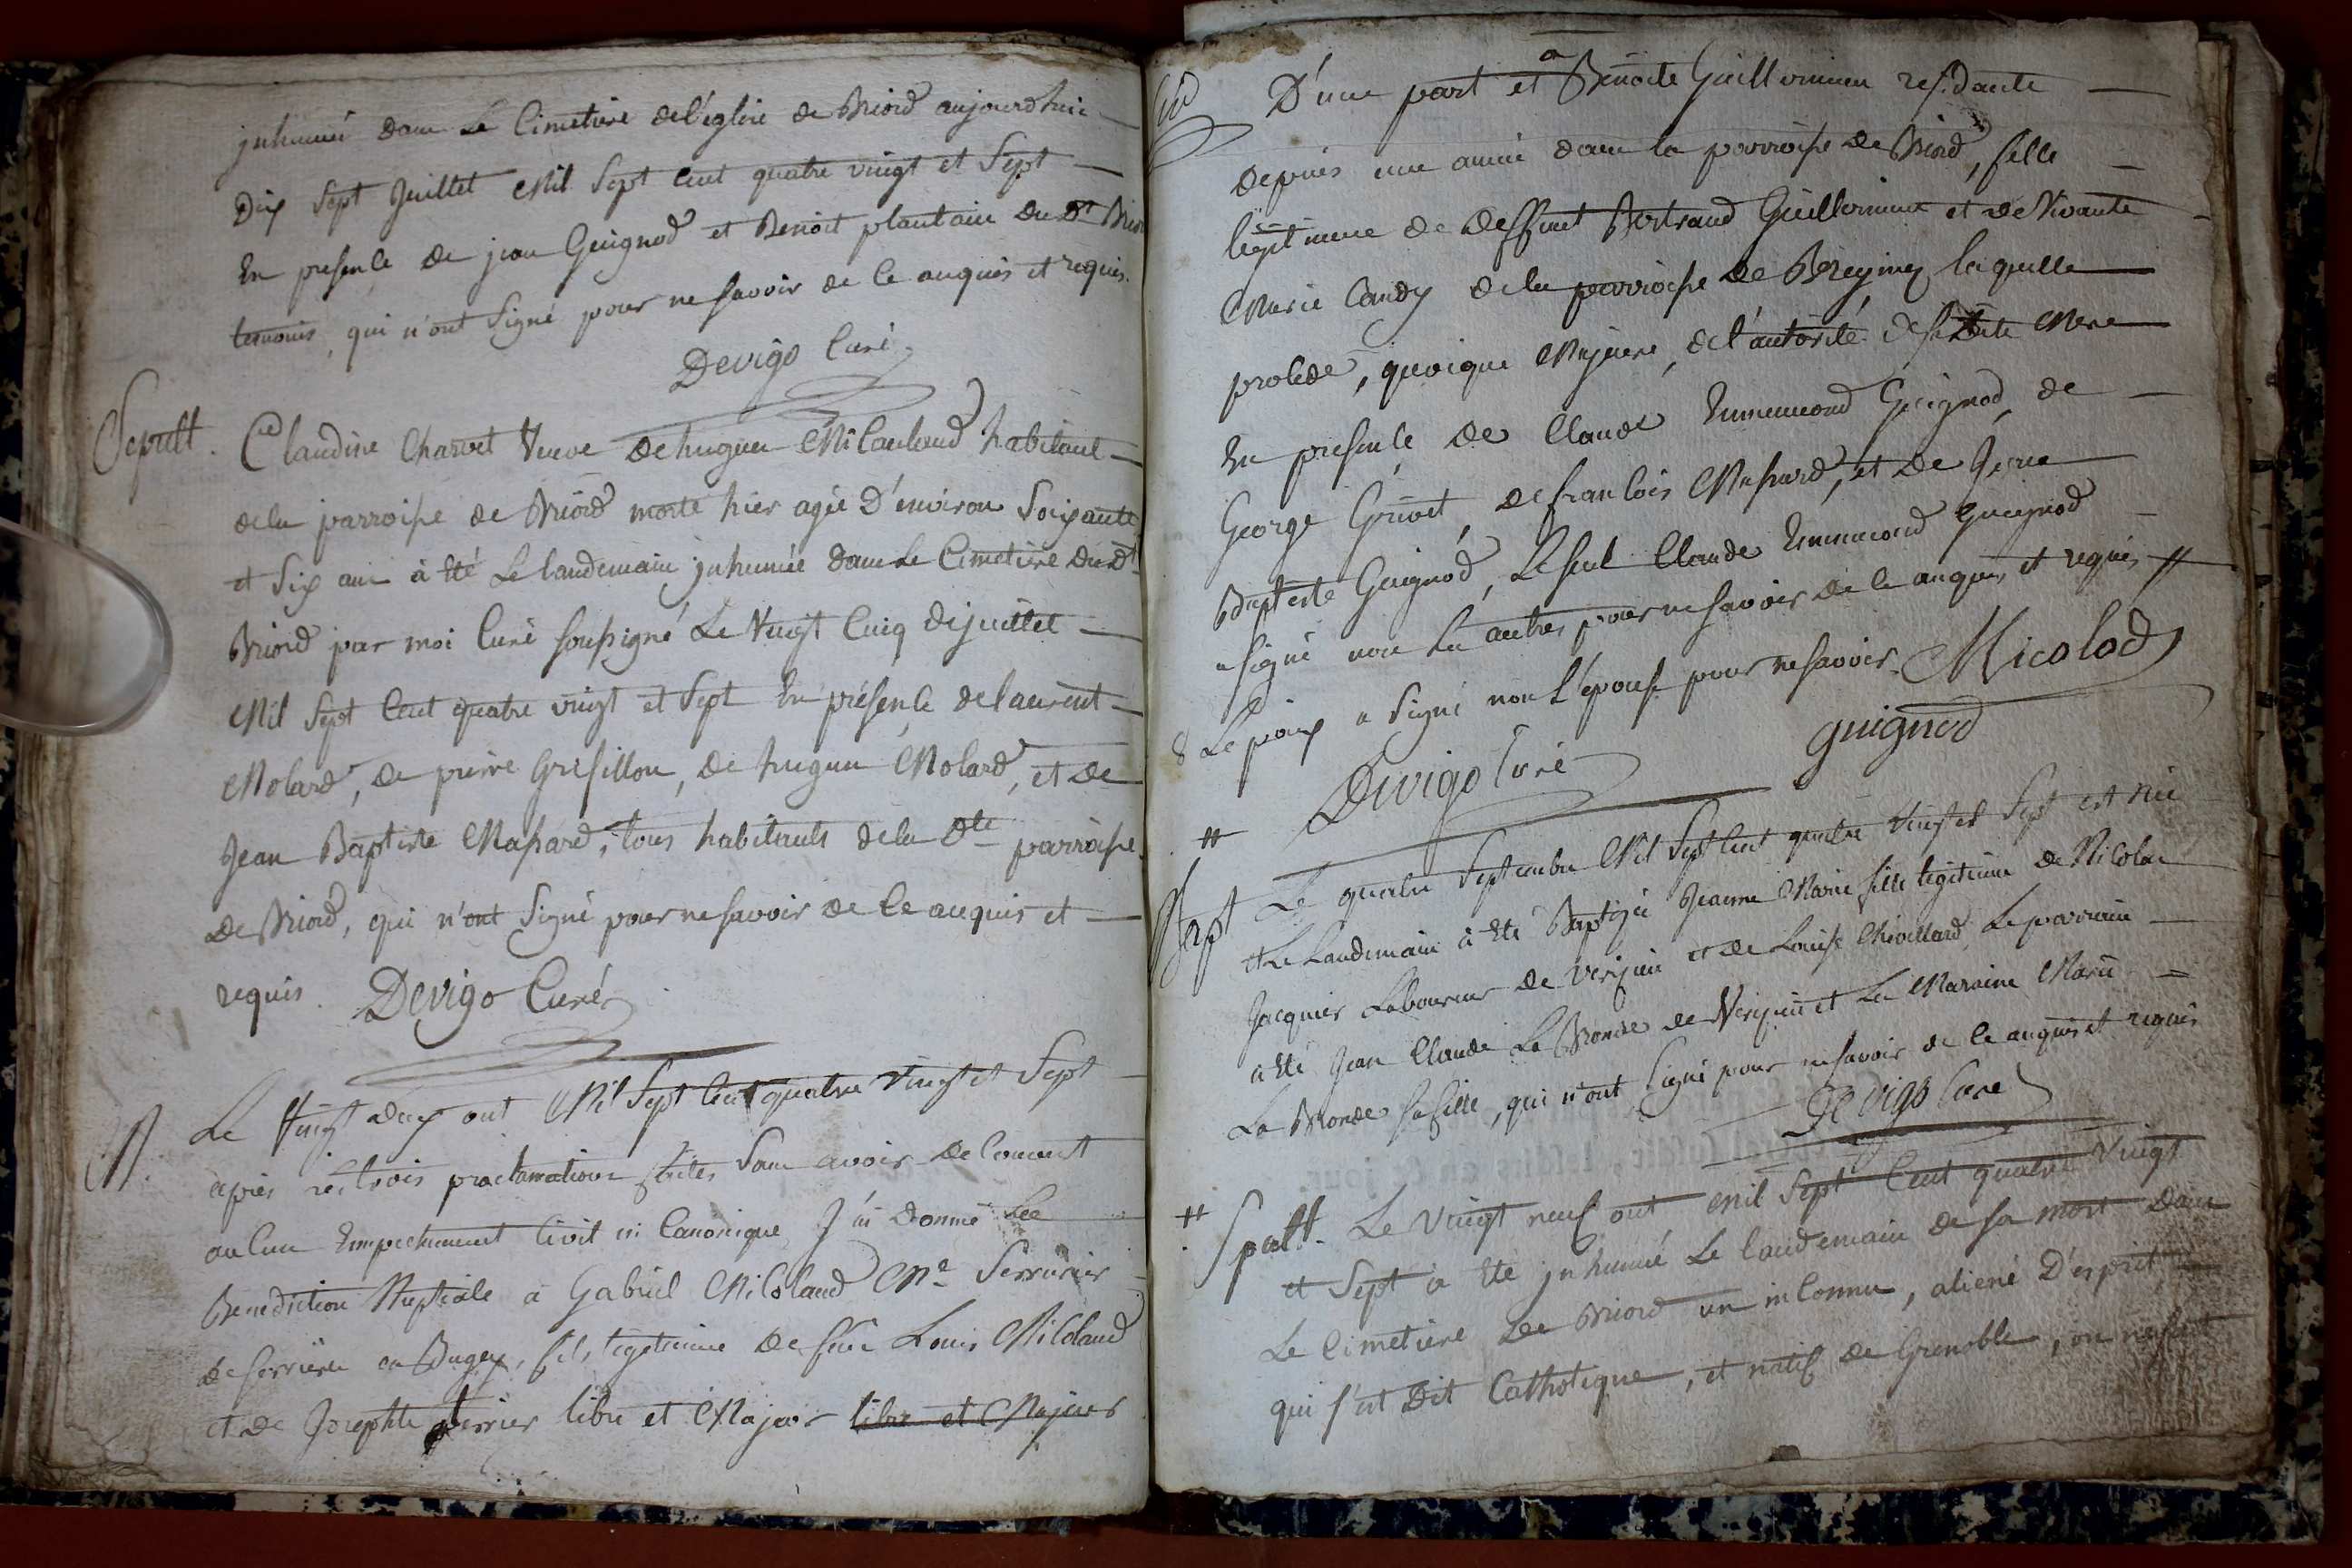 jnhumé dans Le Cimetiere de l'église de Briord aujourdhui
Dix Sept Juillet Mil Sept Cent quatre vingt et Sept
En presence de jean Guignod et Benoit plantain du dt Briord
temoins, qui n'ont Signé pour ne Savoir de ce anquis et requis.
Devigo Curé
Sepult. Claudine Charvet Veuve de hugues Micaulaud habitant
de la parroisse de Briord morte hier agée D'environ Soixante
et Six ans à Eté Le landemain jnhumée dans Le Cimetiere du dt
Briord par moi Curé soussigné Le Vingt Cinq de juillet
Mil Sept Cent quatre vingt et Sept En présence de laurent
Molard, de pierre Grisillon, de hugues Molard, et de
Jean Baptiste Massard, tous habitants de la dte parroisse
de Briord, qui n'ont Signé pour ne savoir de ce anquis et
requis. Devigo Curé
M. Le Vingt deux out Mil Sept Cent quatre Vingt et Sept
après les trois proclamations faites Sans avoir decouvert
aucun Empechement Civil ni Canonique J'ai donné La
Benediction Nuptiale à Gabriel Micoland Me Serrurier
de serriere en Bugey, fils legitime de feu Louis Micoland
et de Josephte perrier libre et Majeur libre et Majeur
D'une part et a Benoite Guillerminen residante
depuis une année dans la parroisse de Briord, fille
legitime de Deffunt Bertrand Guillerminen et de Vivante
Marie Candy de la parroisse de Breginez laquelle
procede, quoique Majeure, de l'autorité de sa dite Mere
En presence de Claude Ennemond Guignod, de
George Grivet, de francois Massard, et de Jean
Baptiste Guignod, Le seul Claude Ennemond Guignod
a signé non Les autres pour ne savoir de ce anquis et requis #
& Le poux a Signé non L'épouse pour ne savoir. Micolod
Devigo Curé guignod
#
Bapt Le quatre Septembre Mil Sept Cent quatre Vingt et Sept est née
et Le Landemain à Eté Baptizée Jeanne Marie fille legitime de Nicolas
Jacquier Laboureur de Verizieu et de Louise Chivillard, Le parrain
a Eté Jean Claude La Bronde de Verizieu et La Maraine Marie
La Bronde sa fille, qui n'ont Signé pour ne savoir de ce anquis et requis
De vigo Curé
# Spult. Le Vingt neuf out mil Sept Cent quatre Vingt
et Sept a Eté jnhumé Le landemain de sa mort dans
Le Cimetiere de Briord un inconnu, aliené D'esprit
qui s'est Dit Catholique, et natif de Grenoble, on ne sait